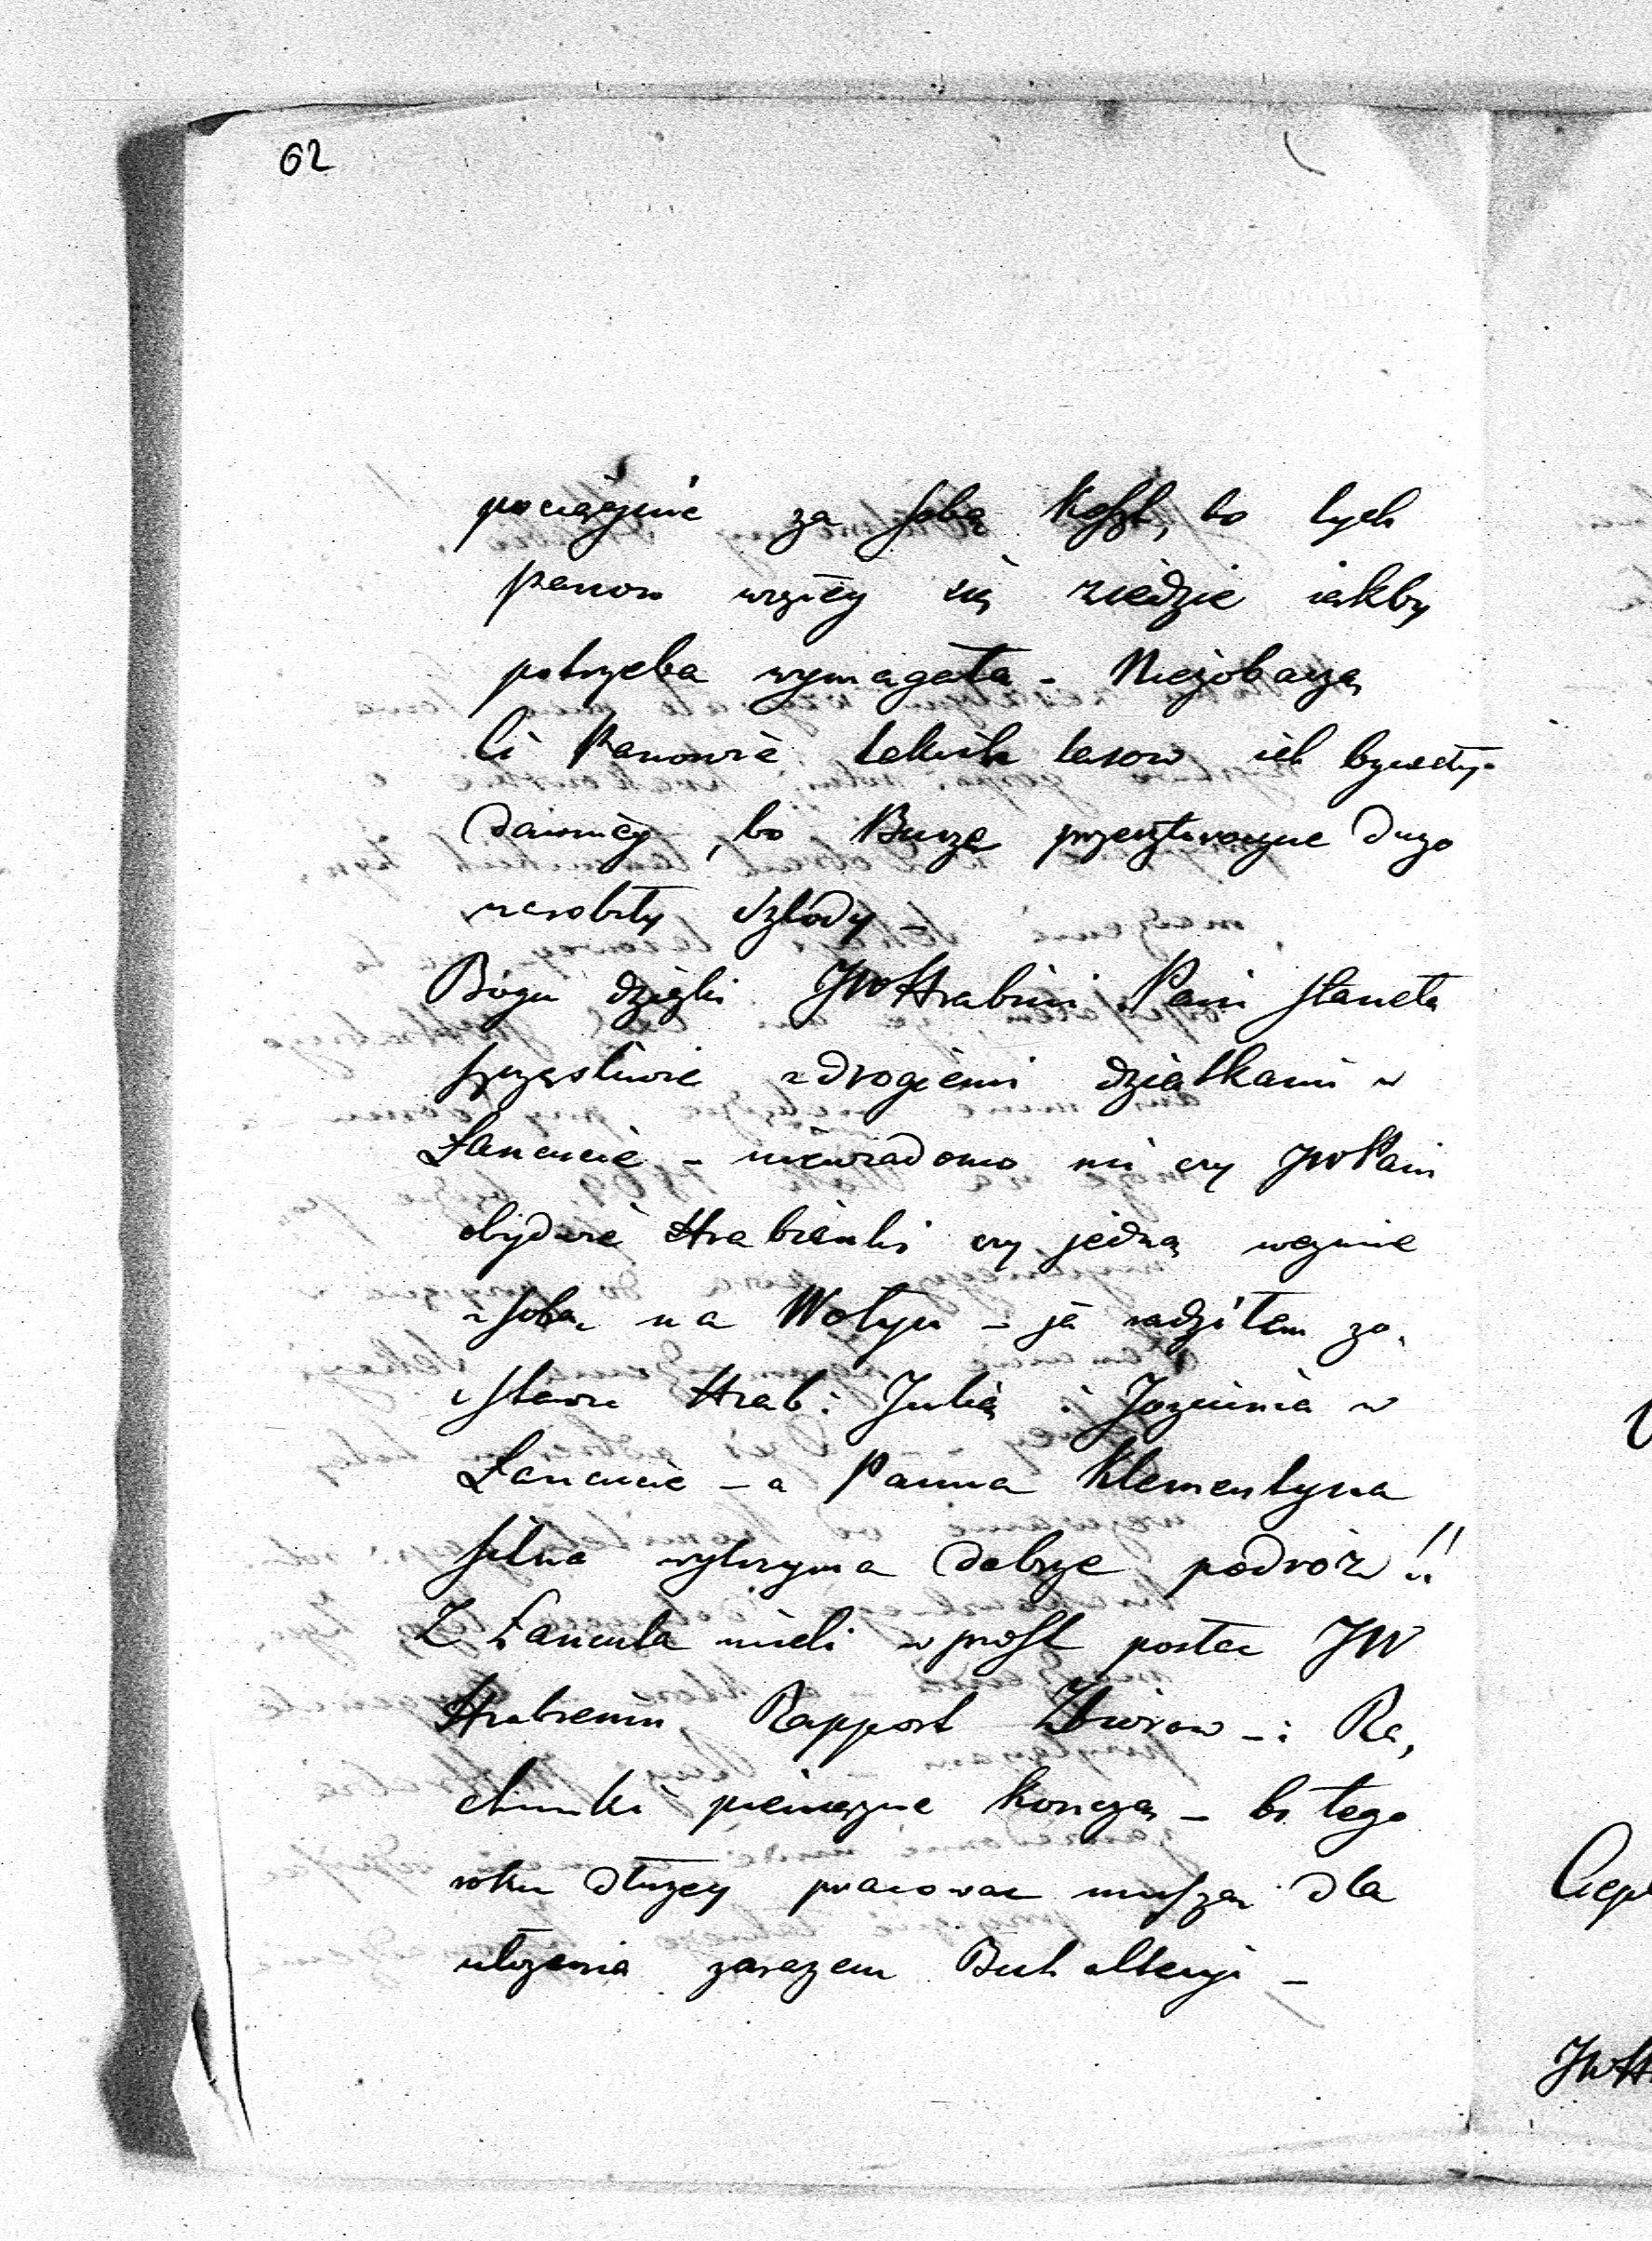 62
pociągnie za sobą koszt, bo tych
panow więcy się ziedzie iakby
potrzeba wymagała - Niezobaczą
li Panowie takich lasow iak bywały
dawniey, bo Burze przeszłoroczne dużo
narobiły szkody -
Bogu dzięki JWHrabini Pani staneła
szczęsliwie z drogiemi dziatkami w
Łancucie - niewiadomo mi czy JWPani
obydwie Hrabianki czy jedną wezmie
z sobą na Wołyn - ja radziłem zo,
stawic Hrab: Julią i Jozunia w
Łancucie - a Panna Klementyna
silna wytrzyma dobrze podróż!!
Z Łancuta mieli wprost posłac JW
Hrabiemu Rapport Zbiorow - i Ra,
chunki pieniężne kończą - bo tego
roku dłużey pracowac muszą dla
ułożenia zarazem Buchalteryi -
Ciep
JWH